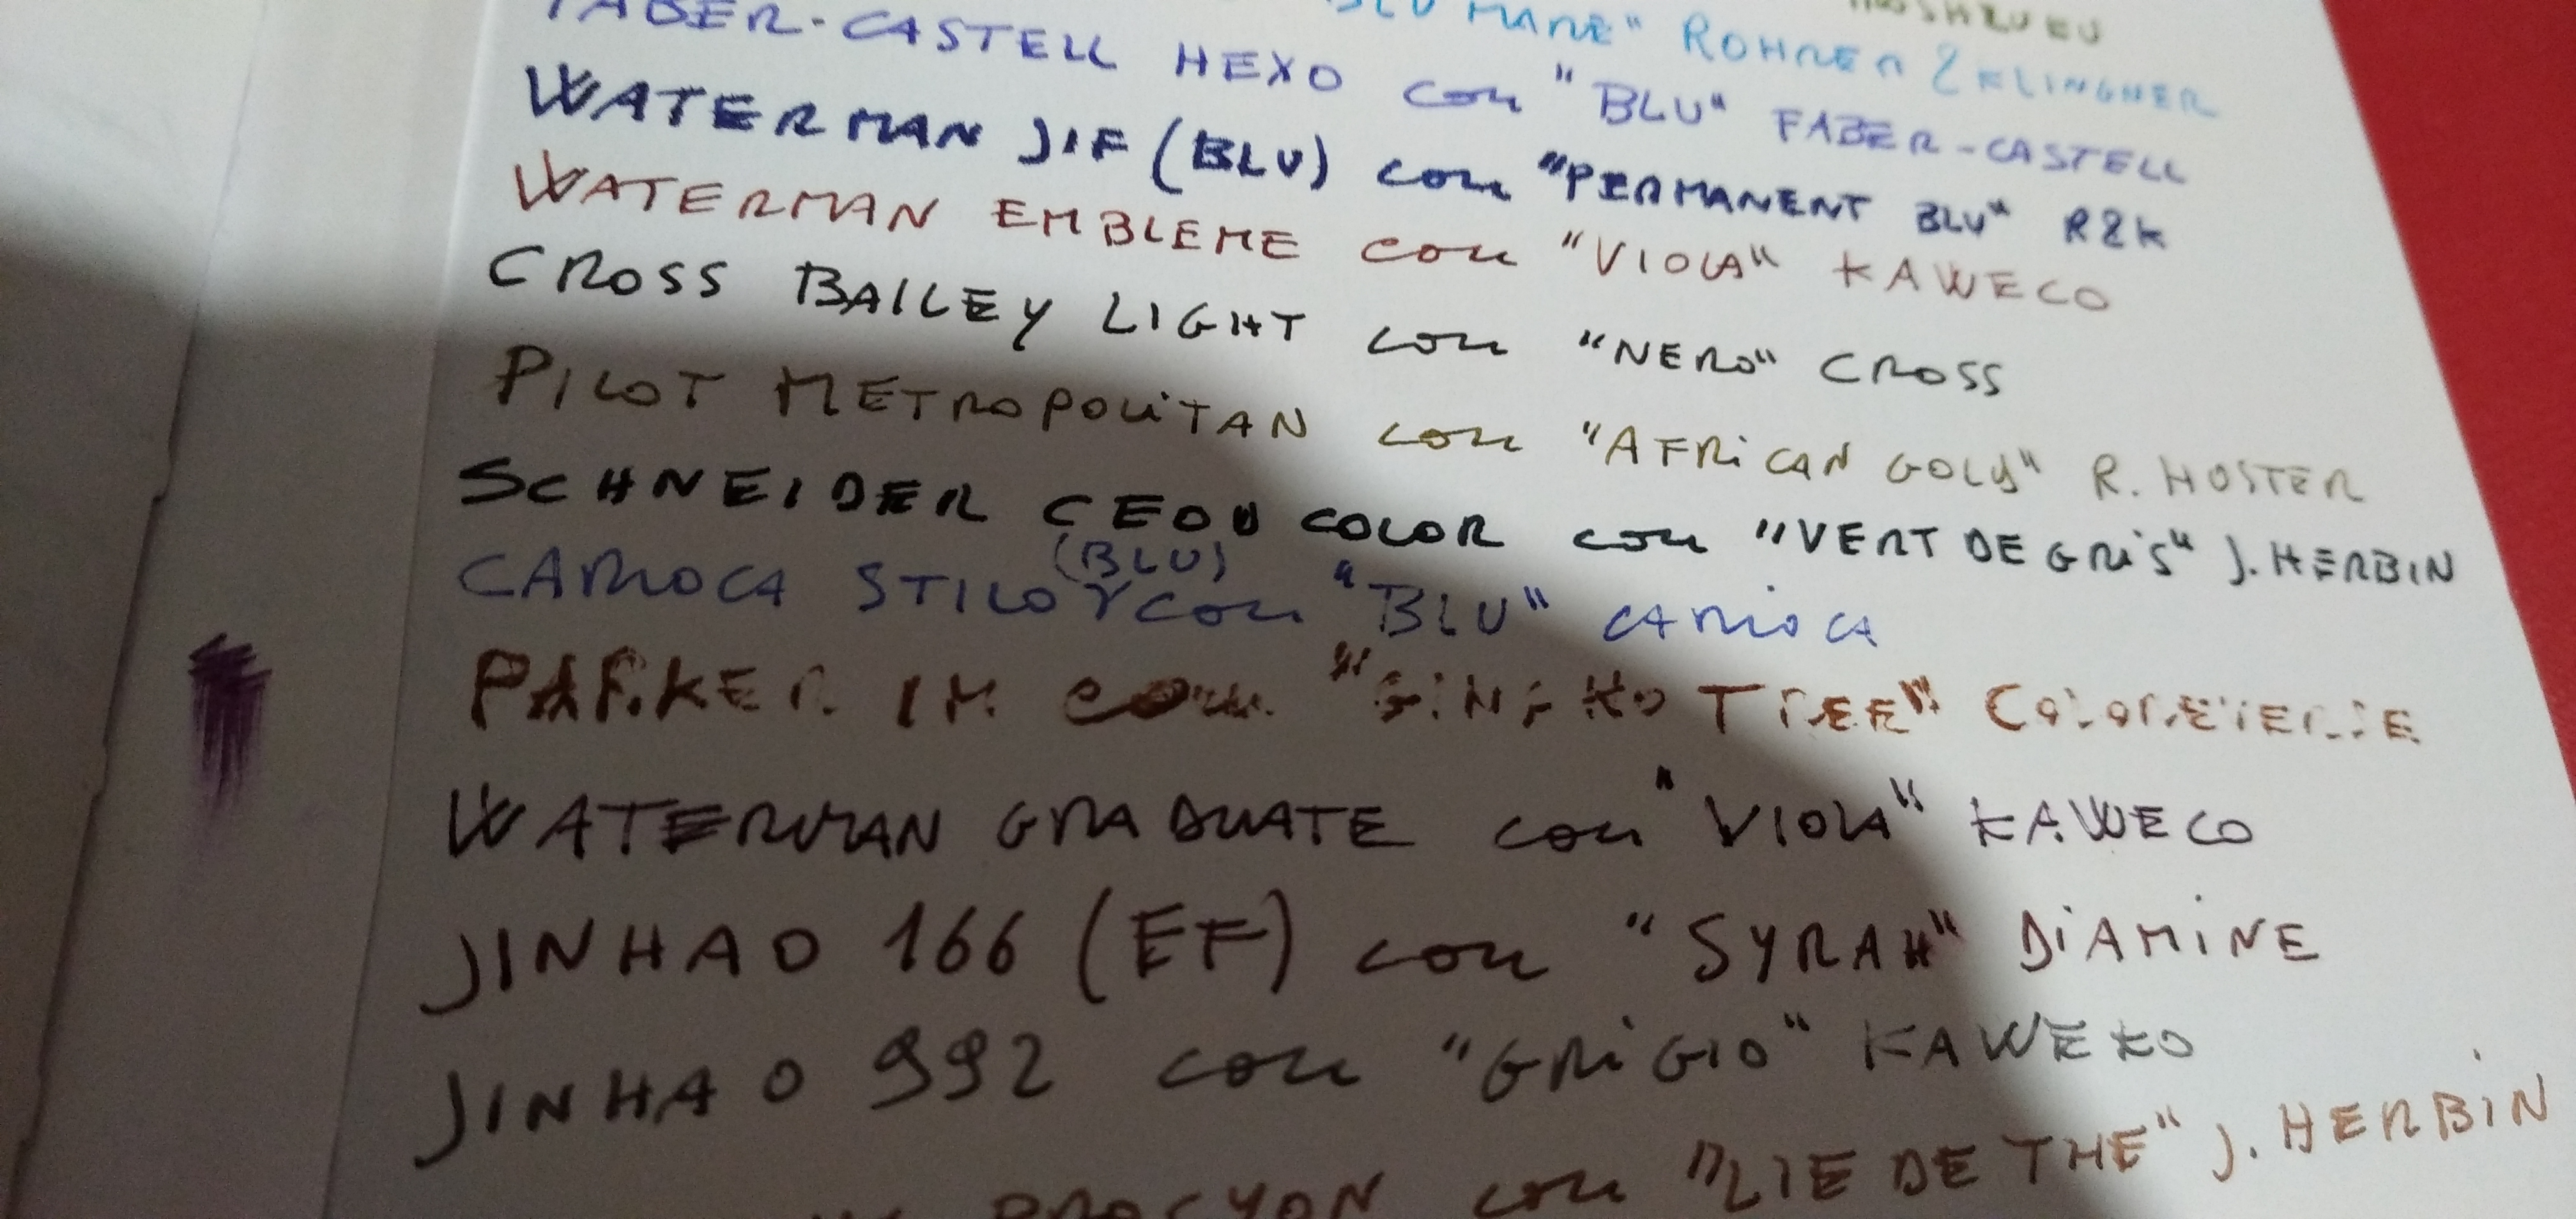 "BLU MARE" ROHRER & KLINGNER
FABER-CASTELL HEXO con "BLU" FABER-CASTELL
WATERMAN JIF (BLU) con "PERMANENT BLU" R&K
WATERMAN EMBLEME con "VIOLA" KAWECO
CROSS BAILEY LIGHT con "NERO" CROSS
PILOT METROPOLITAN con "AFRICAN GOLD" R. HOSTER
SCHNEIDER CEOD COLOR con "VERT DE GRIS" J. HERBIN
CARIOCA STILO (BLU) con "BLU" CARIOCA
PARKER IM con "GINGKO TREE" COLORVERSE
WATERMAN GRADUATE con "VIOLA" KAWECO
JINHAO 166 (EF) con "SYRAH" DIAMINE
JINHAO 992 con "GRIGIO" KAWEKO
PROCYON con "LIE DE THE" J. HERBIN